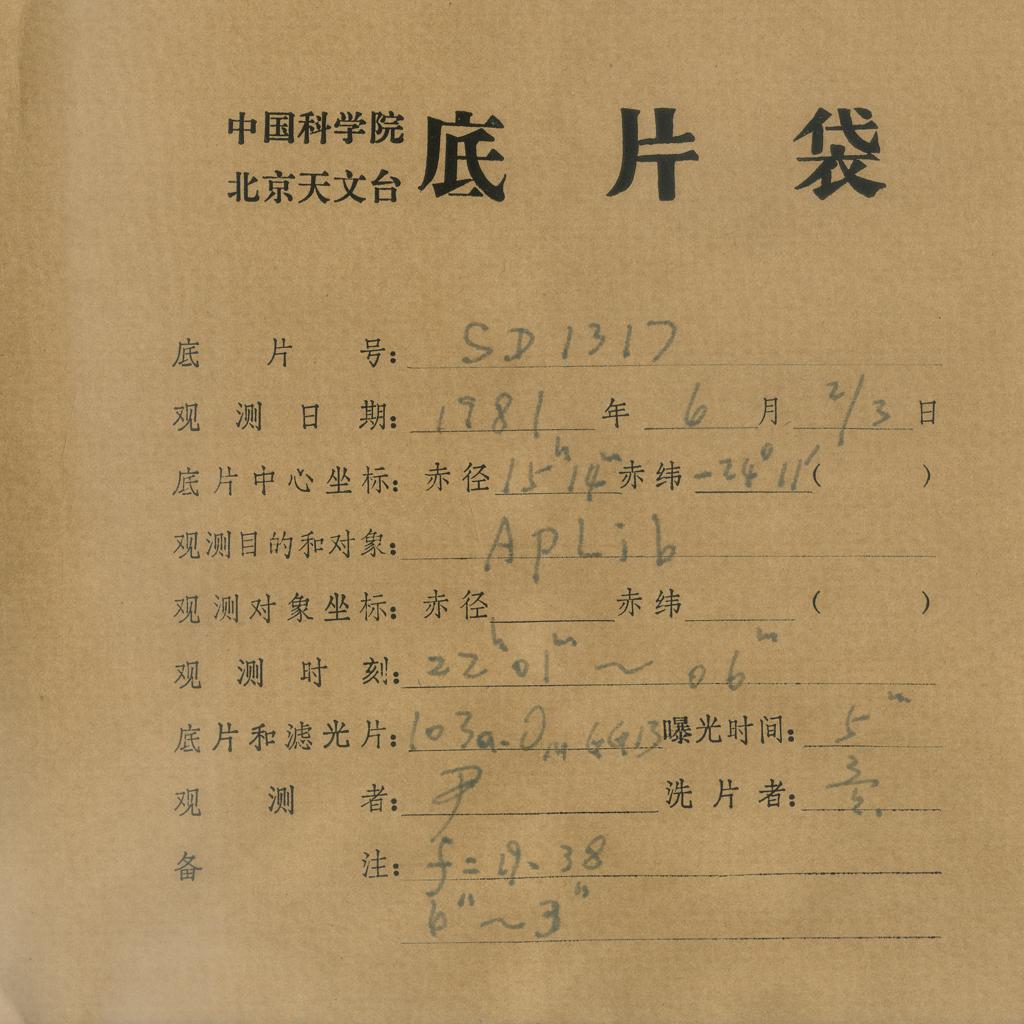 中国科学院
北京天文台
底片袋
底片号: SD1317
观测日期: 1981年6月2/3日
底片中心坐标: 赤径15ʰ14ᵐ赤纬-24°11′( )
观测目的和对象: ApLib
观测对象坐标: 赤径 赤纬 ( )
观测时刻: 22ʰ01ᵐ～06ᵐ
底片和滤光片: 103a-O GG13 曝光时间: 5ᵐ
观测者: 尹 洗片者:
备注: f=19.38
6″～3″